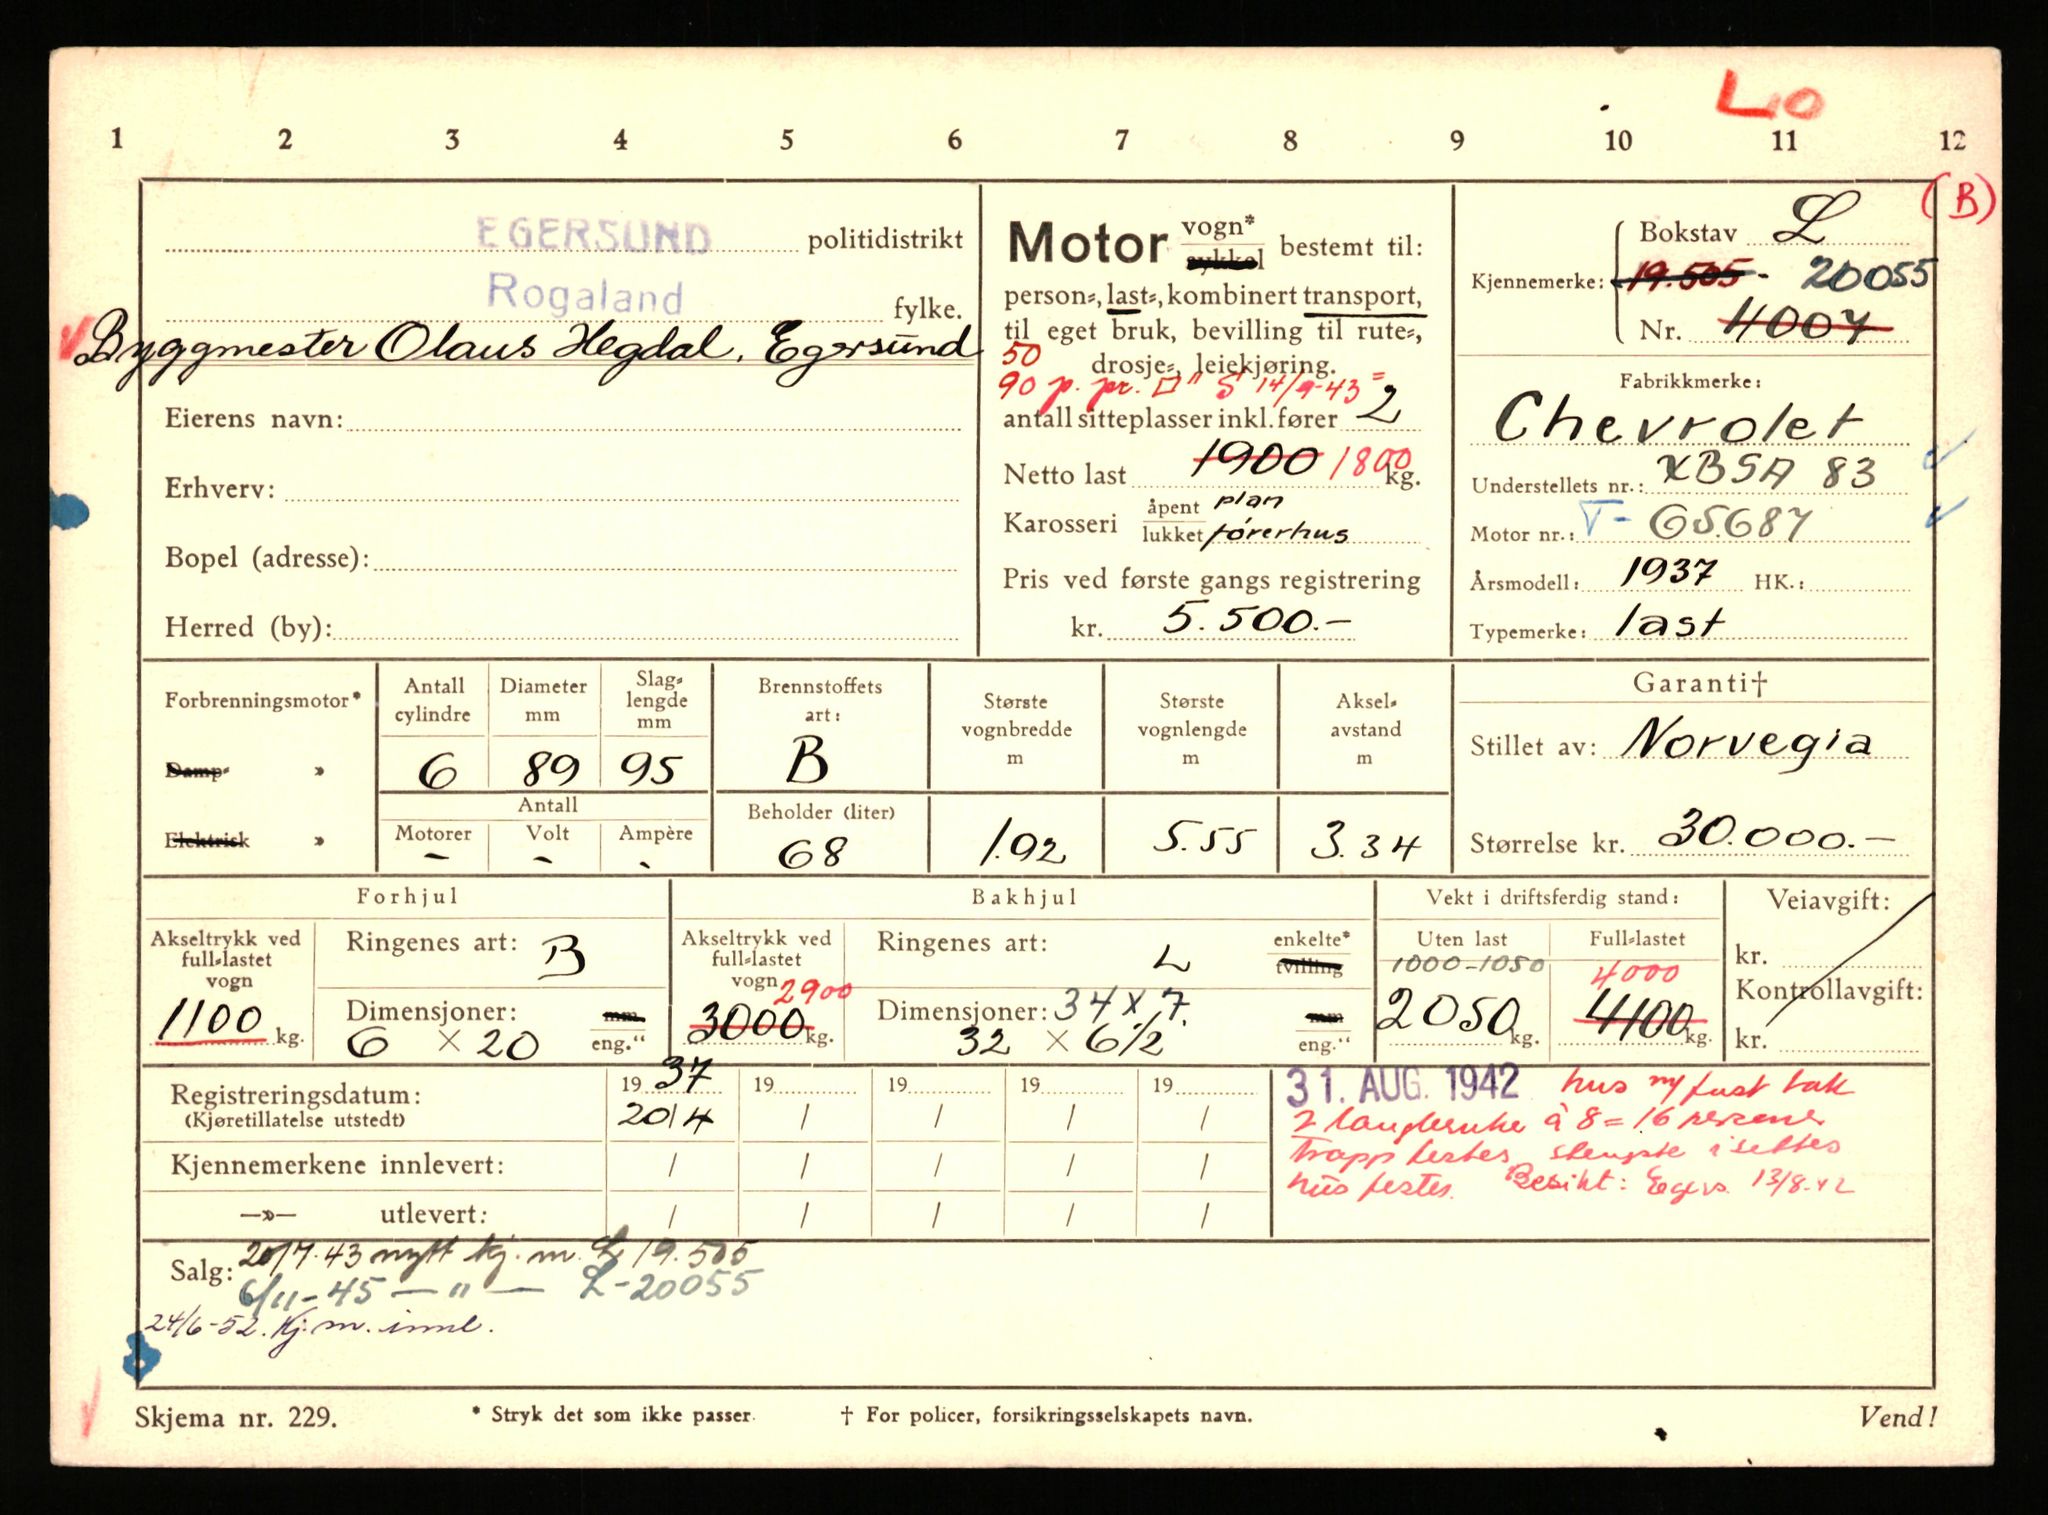 Lo
1 2 3 4 5 6 7 8 9 10 11 12
(B)
EGERSUND politidistrikt
Rogaland fylke.
Byggmester Olaus Hegdal, Egersund
Eierens navn:
Erhverv:
Bopel (adresse):
Herred (by):
Motor vogn* sykkel bestemt til:
person-, last-, kombinert transport,
til eget bruk, bevilling til rute-,
50 drosje-, leiekjøring.
90 p. pr. □" S 14/9-43 =
antall sitteplasser inkl. fører 2
Netto last 1900 1800 kg.
Karosseri åpent plan
lukket førerhus
Pris ved første gangs registrering
kr. 5.500.-
Bokstav L
Kjennemerke: 19.505 - 20055
Nr. 4007
Fabrikkmerke:
Chevrolet
Understellets nr.: XBSA 83
Motor nr.: T- 65687
Årsmodell: 1937 HK.:
Typemerke: last
Forbrenningsmotor*
Damp- »
Elektrisk »
Antall cylindre 6
Diameter mm 89
Slag-lengde mm 95
Antall
Motorer - Volt - Ampère -
Brennstoffets art: B
Beholder (liter) 68
Største vognbredde m 1.92
Største vognlengde m 5.55
Aksel-avstand m 3.34
Garanti†
Stillet av: Norvegia
Størrelse kr. 30.000.-
Forhjul
Akseltrykk ved full-lastet vogn 1100 kg.
Ringenes art: B
Dimensjoner: mm
6 × 20 eng."
Bakhjul
Akseltrykk ved full-lastet vogn 2900
3000 kg.
Ringenes art: L enkelte* tvilling
Dimensjoner: 34 x 7. mm
32 × 6½ eng."
Vekt i driftsferdig stand:
Uten last 1000-1050
2050 kg.
Full-lastet 4000
4100 kg.
Veiavgift:
kr.
Kontrollavgift:
kr.
Registreringsdatum: 19 37 19 19 19 19
(Kjøretillatelse utstedt) 20/4 / / / /
Kjennemerkene innlevert: / / / / /
—»— utlevert: / / / / /
31. AUG. 1942 hus m/fast tak
2 langbenker à 8 = 16 personer
Trapp festes
hus festes. Besikt: Egers. 13/8-42
Salg: 20/7-43 nytt kj. m. L 19.505
6/11-45 — " — L-20055
24/6-52. Kj. m. innl.
Skjema nr. 229.
* Stryk det som ikke passer.
† For policer, forsikringsselskapets navn.
Vend!